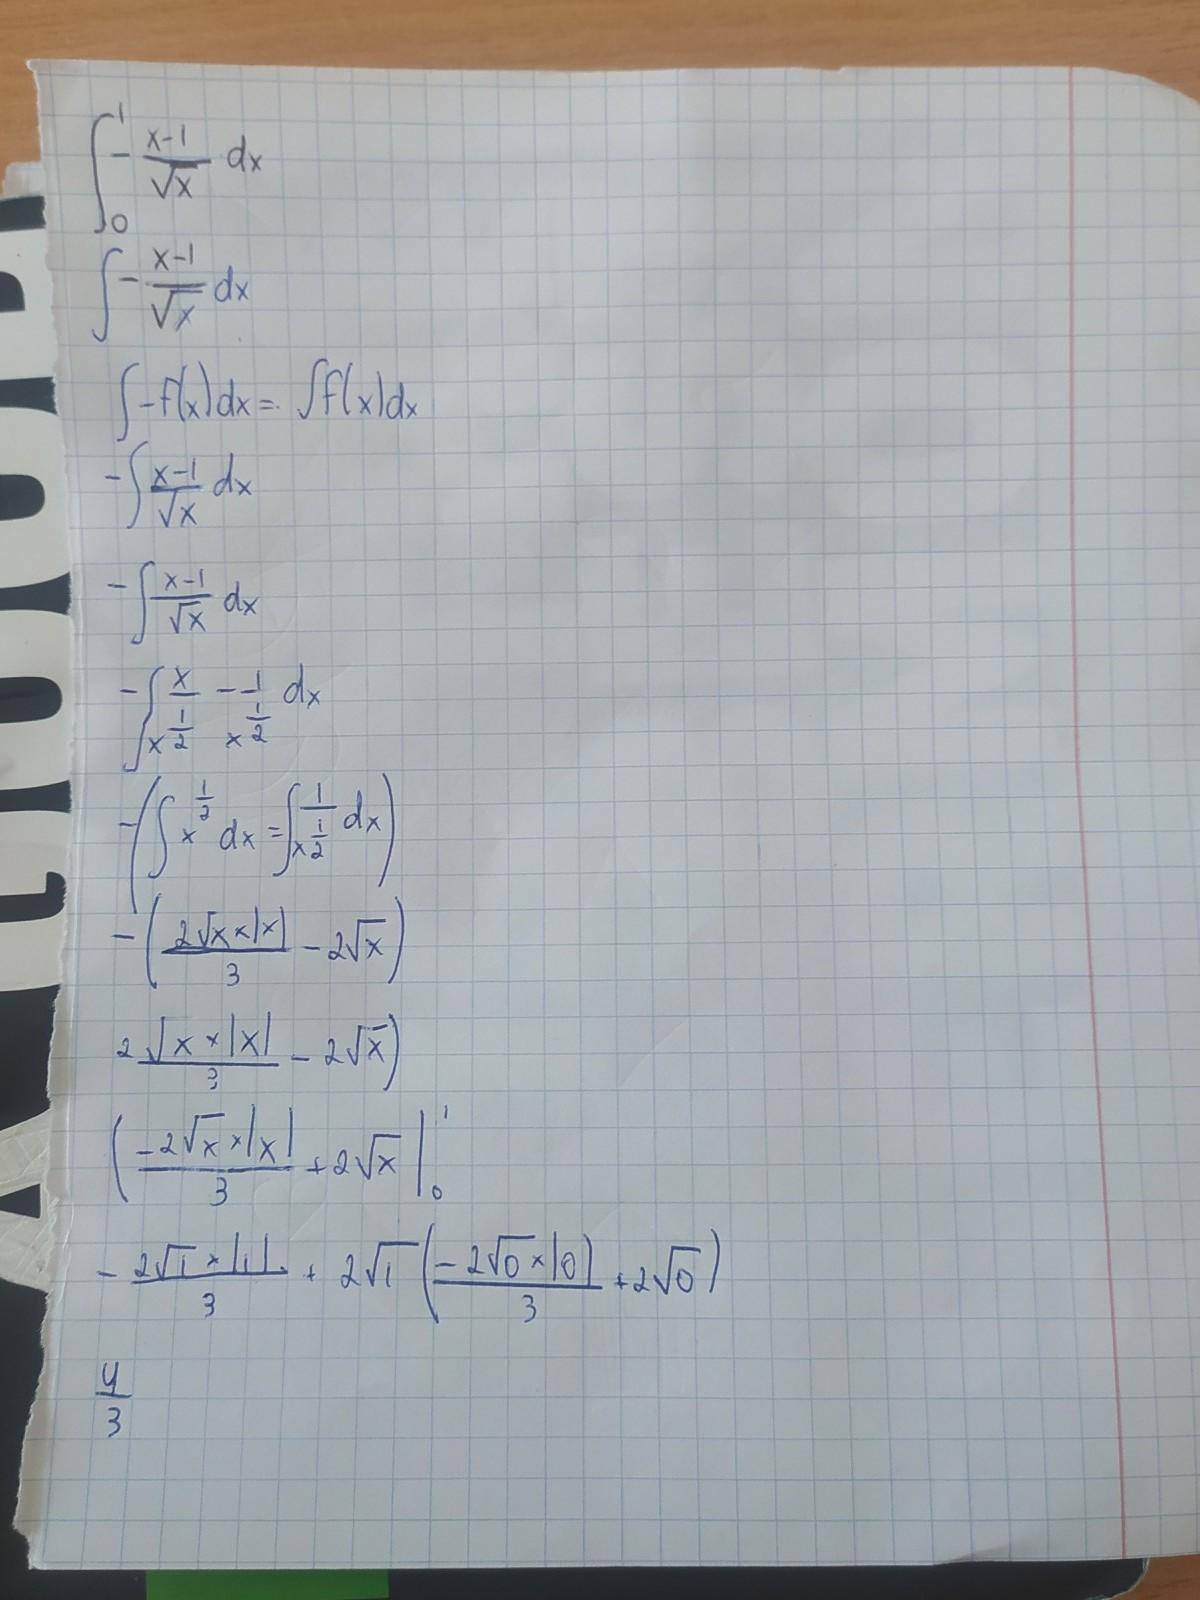 ∫₀¹ - (x-1)/√x dx
∫ - (x-1)/√x dx
∫-f(x)dx = ∫f(x)dx
-∫ (x-1)/√x dx
-∫ (x-1)/√x dx
-∫ x/x^(1/2) - 1/x^(1/2) dx
-(∫ x^(1/2) dx = ∫ 1/x^(1/2) dx)
-( (2√x × |x|)/3 - 2√x )
(2√x × |x|)/3 - 2√x )
( (-2√x × |x|)/3 + 2√x |₀¹
- (2√1 × |1|)/3 + 2√1 ( (-2√0 × |0|)/3 + 2√0 )
4/3